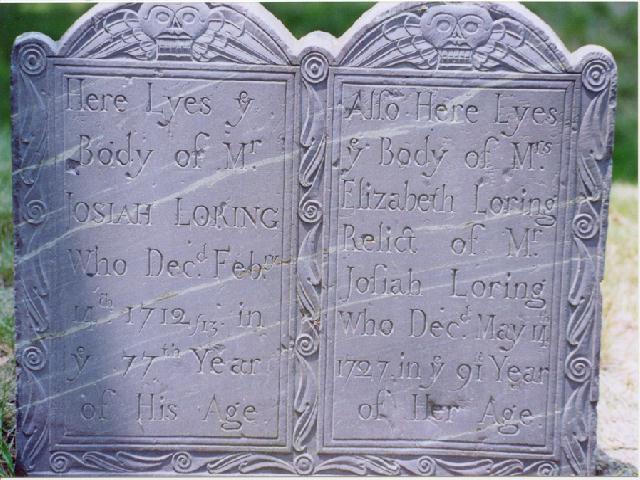 Here Lyes yͤ
Body of Mʳ.
JOSIAH LORING
Who Decᵈ. Febʳʸ
14ᵗʰ. 1712/13. in
yͤ 77ᵗʰ Year
of His Age
Alſo Here Lyes
yͤ Body of Mʳˢ.
Elizabeth Loring
Relict of Mʳ.
Joſiah Loring
Who Decᵈ. May 14
1727. in yͤ 91ˢᵗ Year
of Her Age.